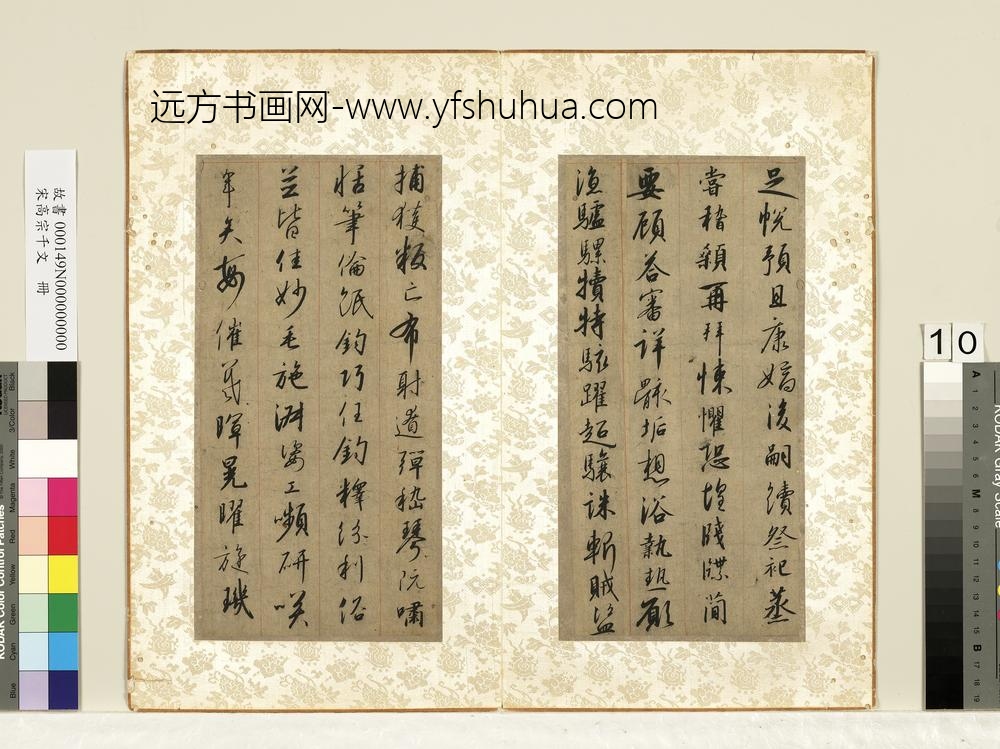 远方书画网-www.yfshuhua.com
足悦預且康嫡後嗣續祭祀蒸
嘗稽顙再拜悚懼恐惶牋牒簡
要顧答審詳骸垢想浴執熱願
涼驢騾犢特駭躍超驤誅斬賊盜
捕獲叛亡布射遼彈嵇琴阮嘯
恬筆倫紙鈞巧任釣釋紛利俗
並皆佳妙毛施淑姿工嚬研咲
年矢每催羲暉晃曜旋璣
故書 000149N000000000
宋高宗千文 冊
10
KODAK Color Control Patches
Blue
Cyan
Green
Yellow
Red
Magenta
White
3/Color
Black
KODAK Gray Scale
A 1 2 3 4 5 6 M 8 9 10 11 12 13 14 15 B 17 18 19